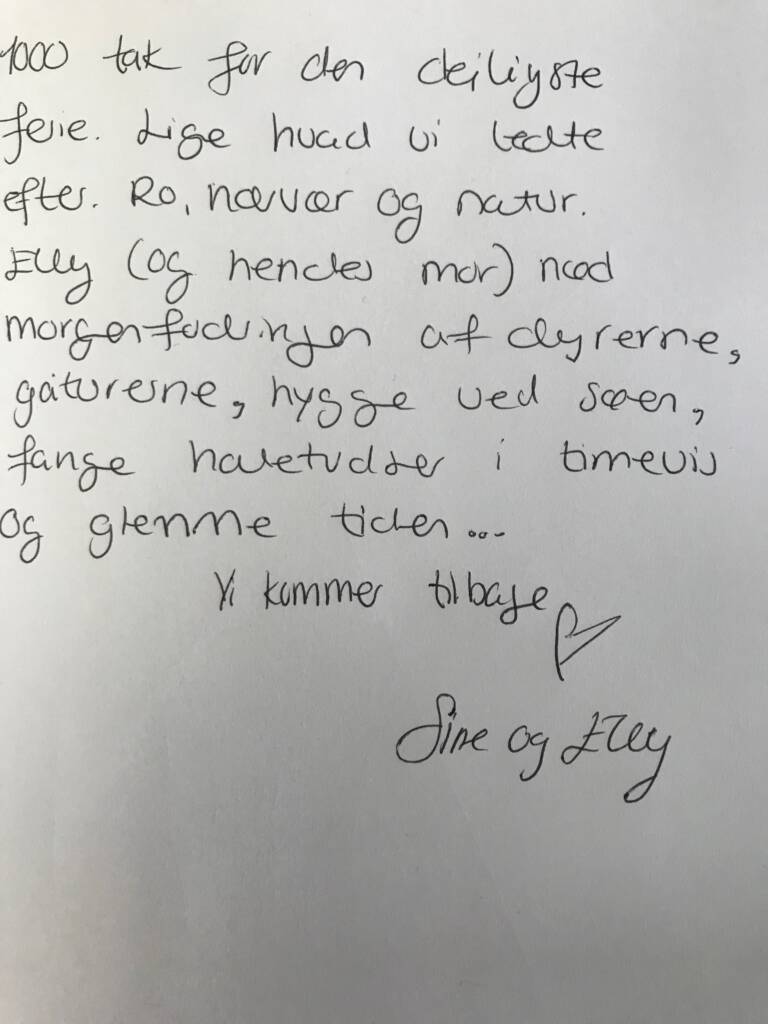 1000 tak for den dejligste
ferie. Lige hvad vi ledte
efter. Ro, nærvær og natur.
Elly (og hendes mor) nød
morgenfodringen af dyrerne,
gåturerne, hygge ved søen,
fange haletudser i timevis
og glemme tiden...
Vi kommer tilbage
Sine og Elly